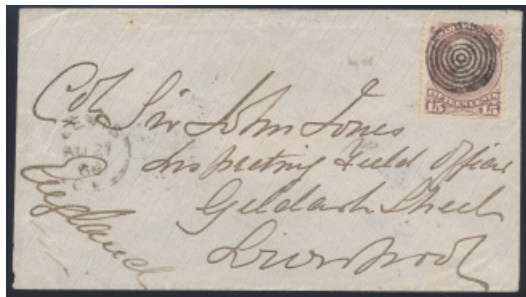 FIFTEEN CENTS
15 15
Col Sir John Jones
Inspecting Field Officer
Geldart Street
Liverpool
England
AU 21